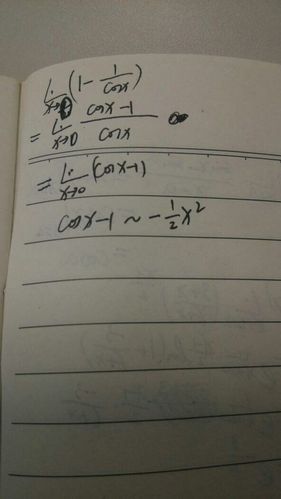 lim x→0 (1 - 1/cosx)
= lim x→0 cosx-1 / cosx
= lim x→0 (cosx-1)
cosx-1 ~ -1/2 x²